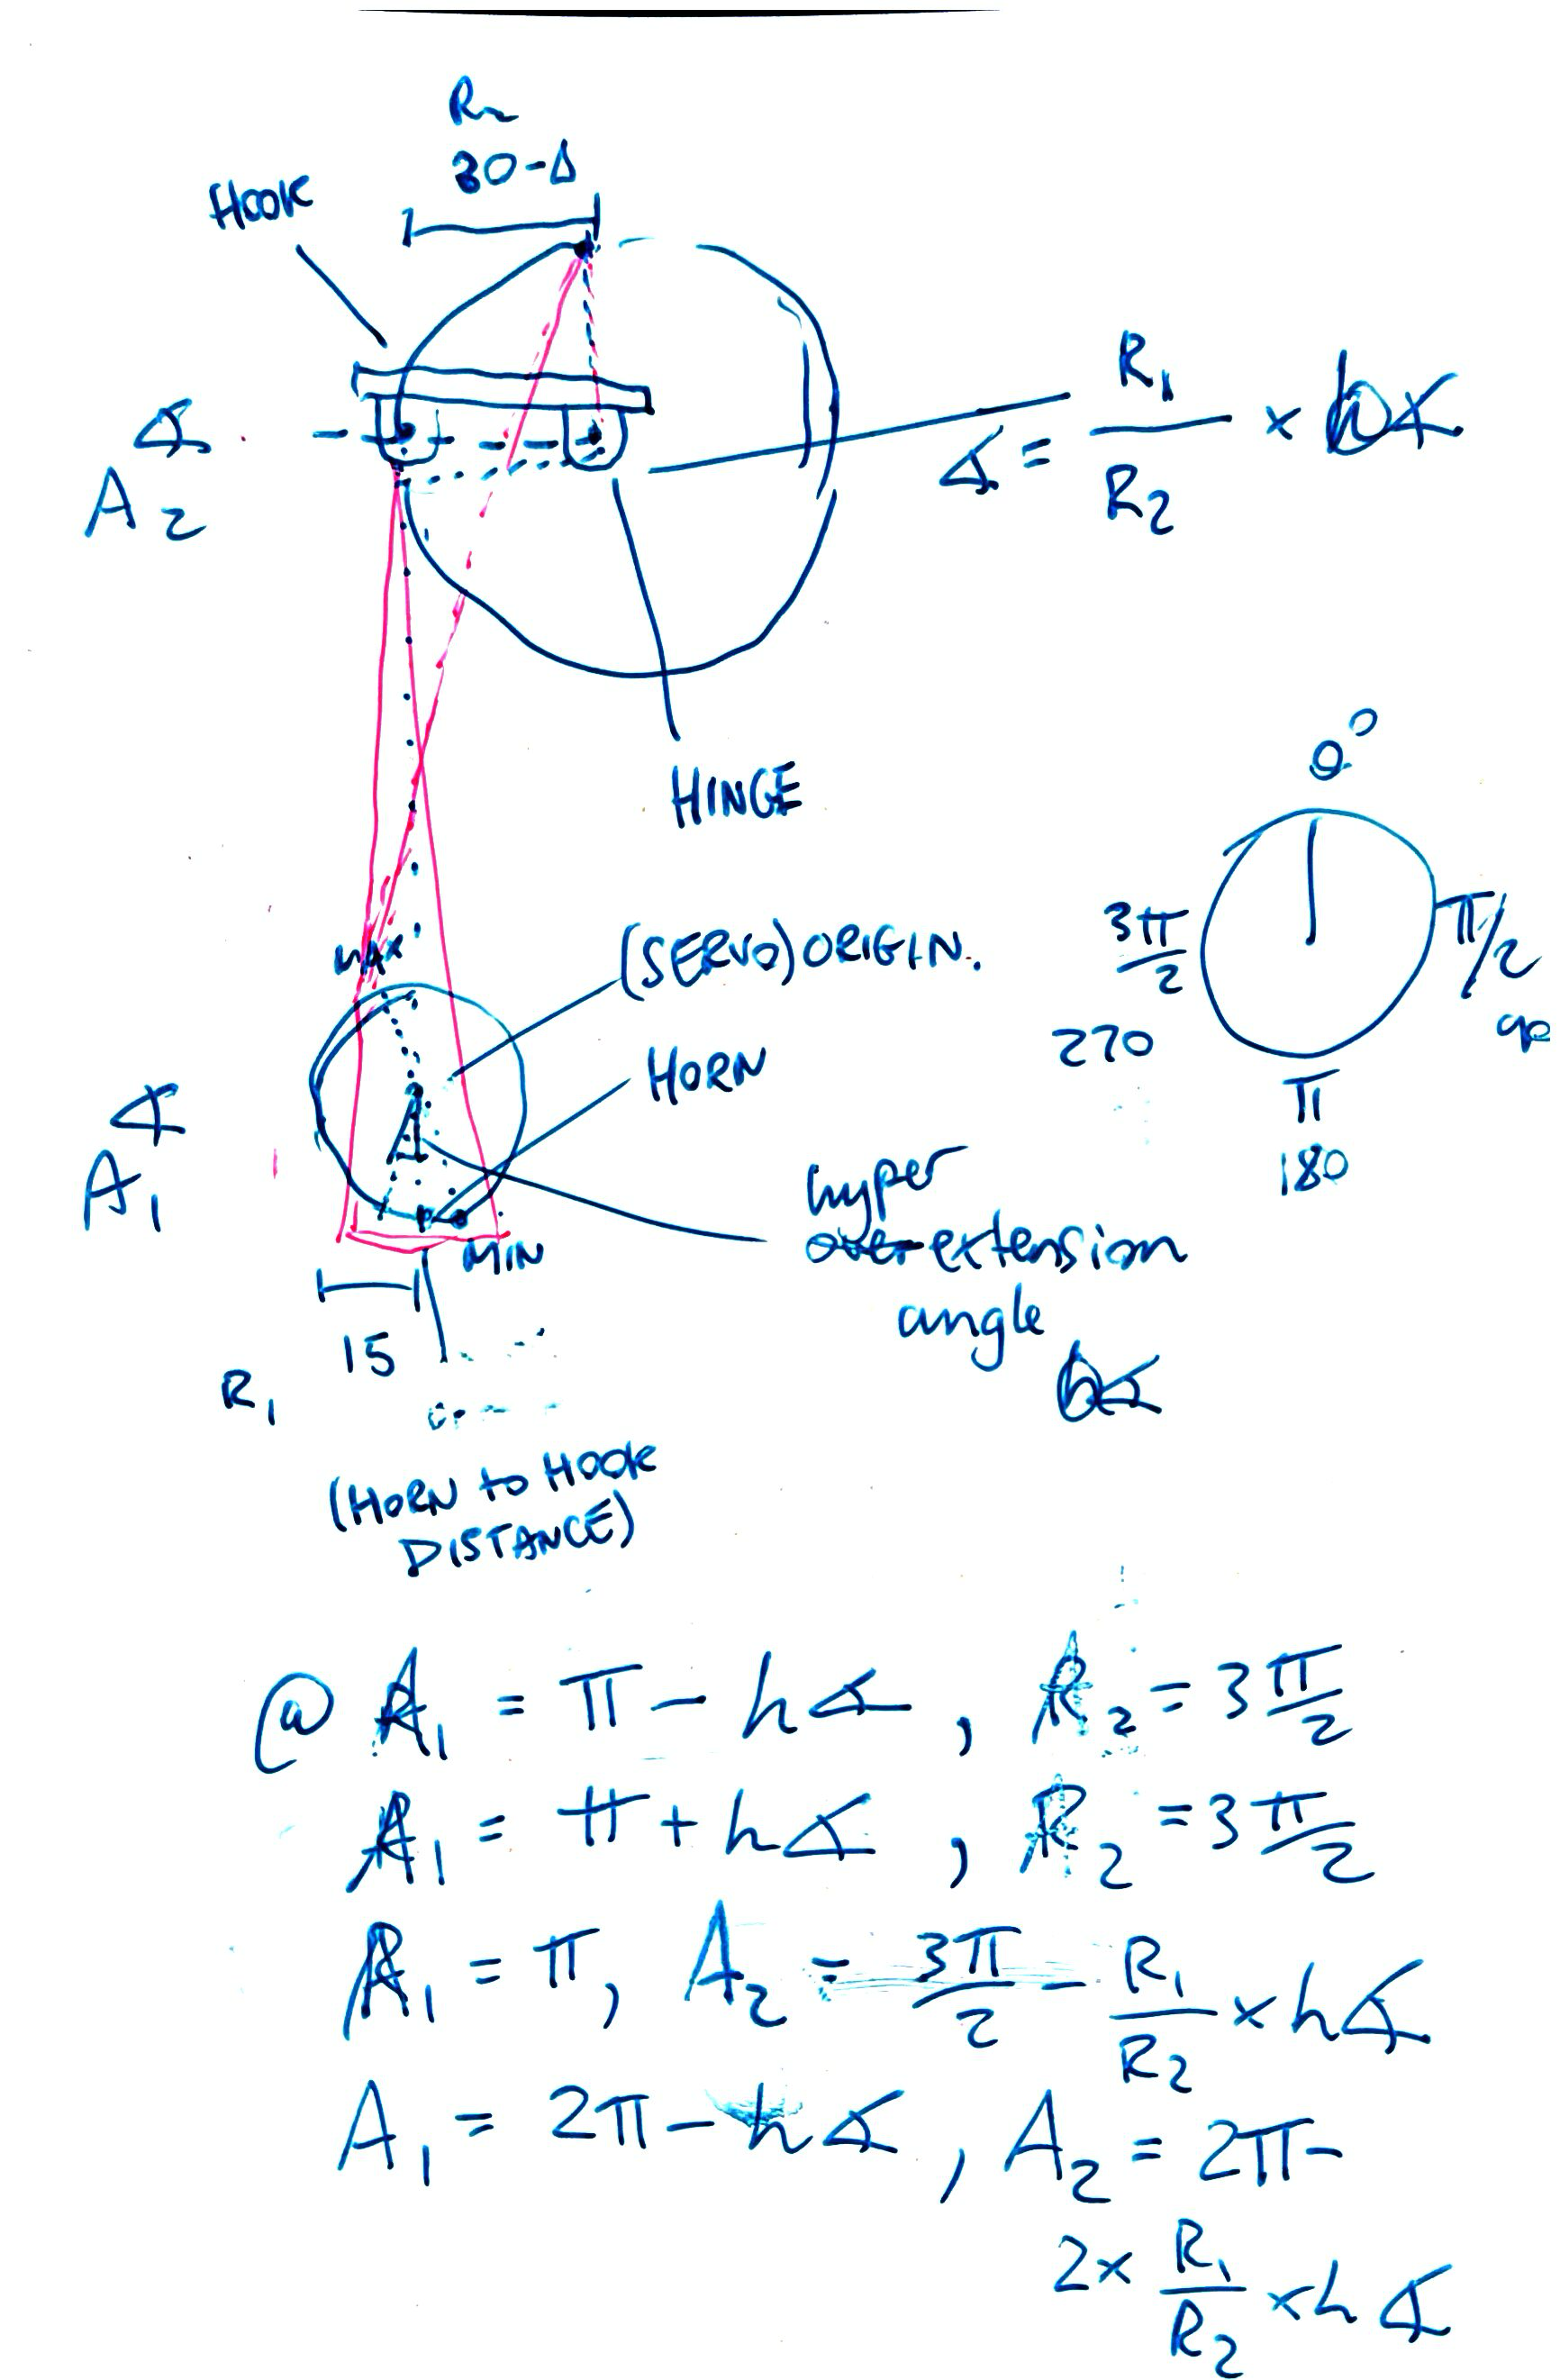 R₂
30-Δ
HOOK
∡
A₂
∡ = R₁/R₂ × h∡
HINGE
0°
3π/2
π/2
270
90
π
180
max
(SERVO) ORIGIN.
HORN
∡
A₁
hyper
over extension
angle
h∡
MIN
15
R₁
(HORN to HOOK
DISTANCE)
@ A₁ = π - h∡, A₂ = 3π/2
A₁ = π + h∡, A₂ = 3π/2
A₁ = π, A₂ = 3π/2 - R₁/R₂ × h∡
A₁ = 2π - h∡, A₂ = 2π -
2 × R₁/R₂ × h∡